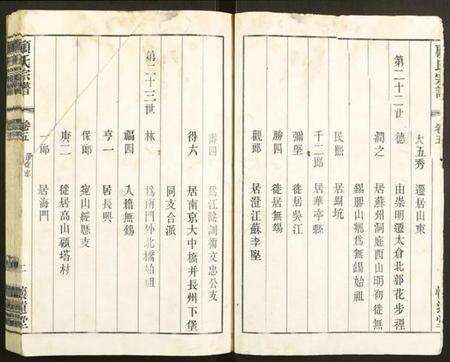 顧氏宗譜
卷五
大五秀 遷居山東
第二十二世
德 由崇明遷太倉北郭花步裡
潤之 居蘇州洞庭西山明初徙無
錫膠山為無錫始祖
民熙 居
千二郎 居華亭縣
彌堅 徙居吳江
勝四 徙居無錫
觀郎 居澄江蘇李墅
壽四 為江陰訓術文忠公支
得六 居南京大中橋并長州下堡
同支合派
第二十三世
林 為南門外北橋始祖
福四 入籍無錫
亨一 居長興
保郎 宛山經縣支
庚二 徙居高山顧塔村
一郎 居海門
顧氏宗譜
卷五
二